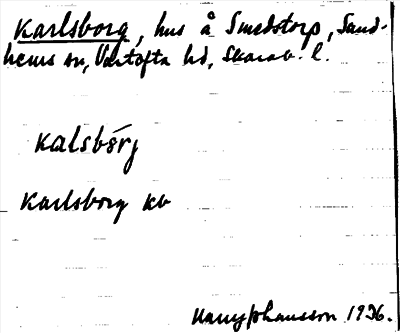 Karlsborg, hus å Smedstorp, Sand-
hems sn, Vartofta hd, Skarab. l.
Kalsbórj
Karlsborg kb
Harry Johansson 1936.